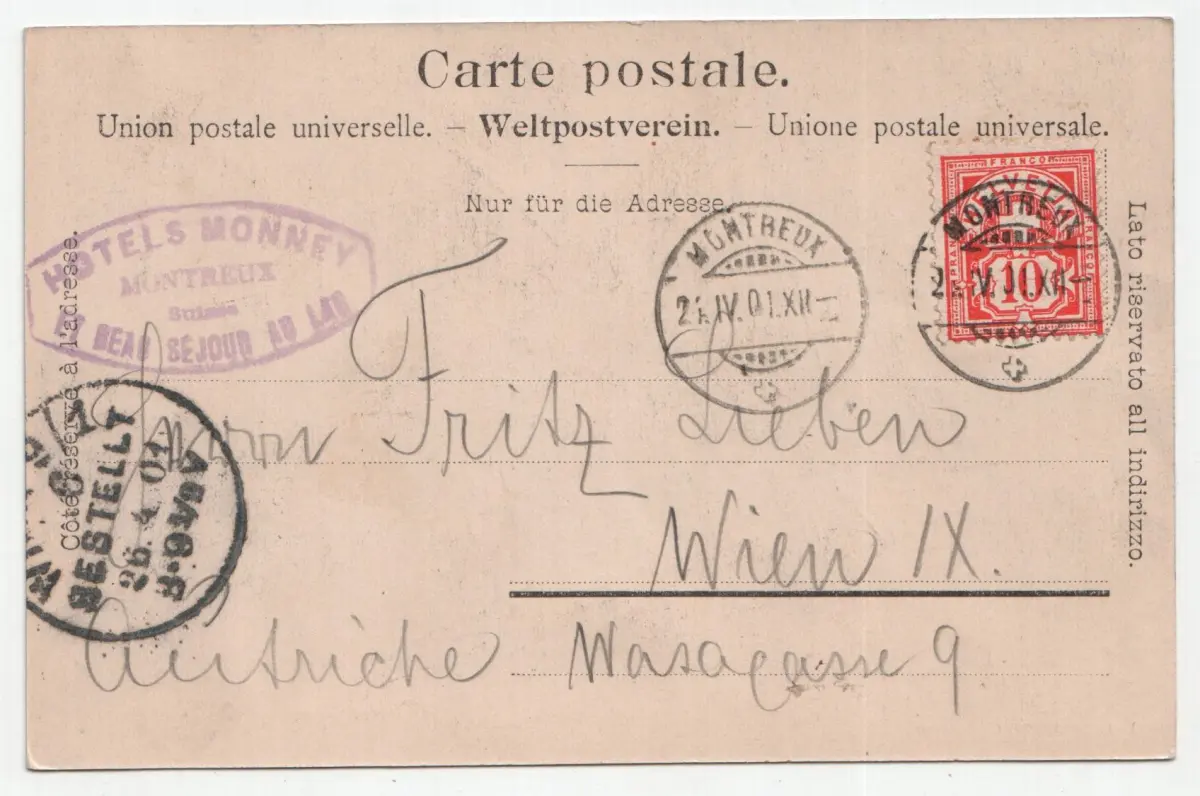 Carte postale.
Union postale universelle. – Weltpostverein. – Unione postale universale.
Nur für die Adresse.
Côté réservé à l'adresse.
Lato riservato all indirizzo.
HOTELS MONNEY
MONTREUX
Suisse
ET BEAU SÉJOUR AU LAC
MONTREUX
IV.01.XII
FRANCO
HELVETIA
10
MONTREUX
IV.01.XII
BESTELLT
26.4.01
Herrn Fritz Lieben
Wien IX.
Autriche Wasagasse 9